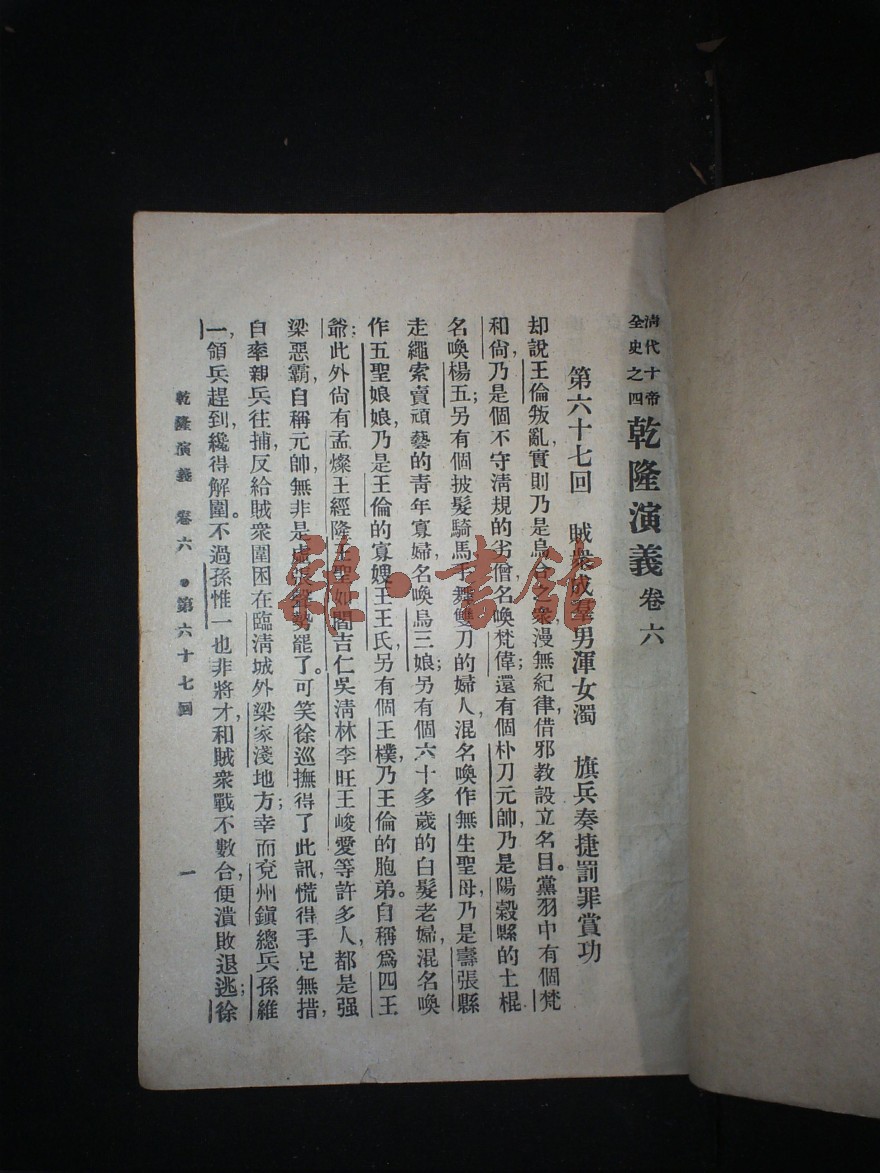 清代十帝
全史之四
乾隆演義 卷六
第六十七回 賊衆成羣男渾女濁 旗兵奏捷罰罪賞功
却說王倫叛亂,實則乃是烏合之衆,漫無紀律,借邪教設立名目。黨羽中有個梵
和尙,乃是個不守淸規的劣僧,名喚梵偉;還有個朴刀元帥,乃是陽穀縣的土棍,
名喚楊五;另有個披髮騎馬手舞雙刀的婦人,混名喚作無生聖母,乃是壽張縣
走繩索賣頑藝的青年寡婦,名喚烏三娘;另有個六十多歲的白髮老婦,混名喚
作五聖娘娘,乃是王倫的寡嫂王王氏;另有個王樸,乃王倫的胞弟。自稱爲四王
爺;此外尙有孟燦王經隆王聖如閻吉仁吳淸林李旺王峻愛等許多人,都是强
梁惡霸,自稱元帥,無非是虛張聲勢罷了。可笑徐巡撫得了此訊,慌得手足無措,
自率親兵往捕,反給賊衆圍困在臨淸城外梁家淺地方;幸而兗州鎭總兵孫維
一,領兵趕到,纔得解圍。不過孫惟一也非將才,和賊衆戰不數合,便潰敗退逃;徐
乾隆演義 卷六 ●第六十七回 一
雜·書館